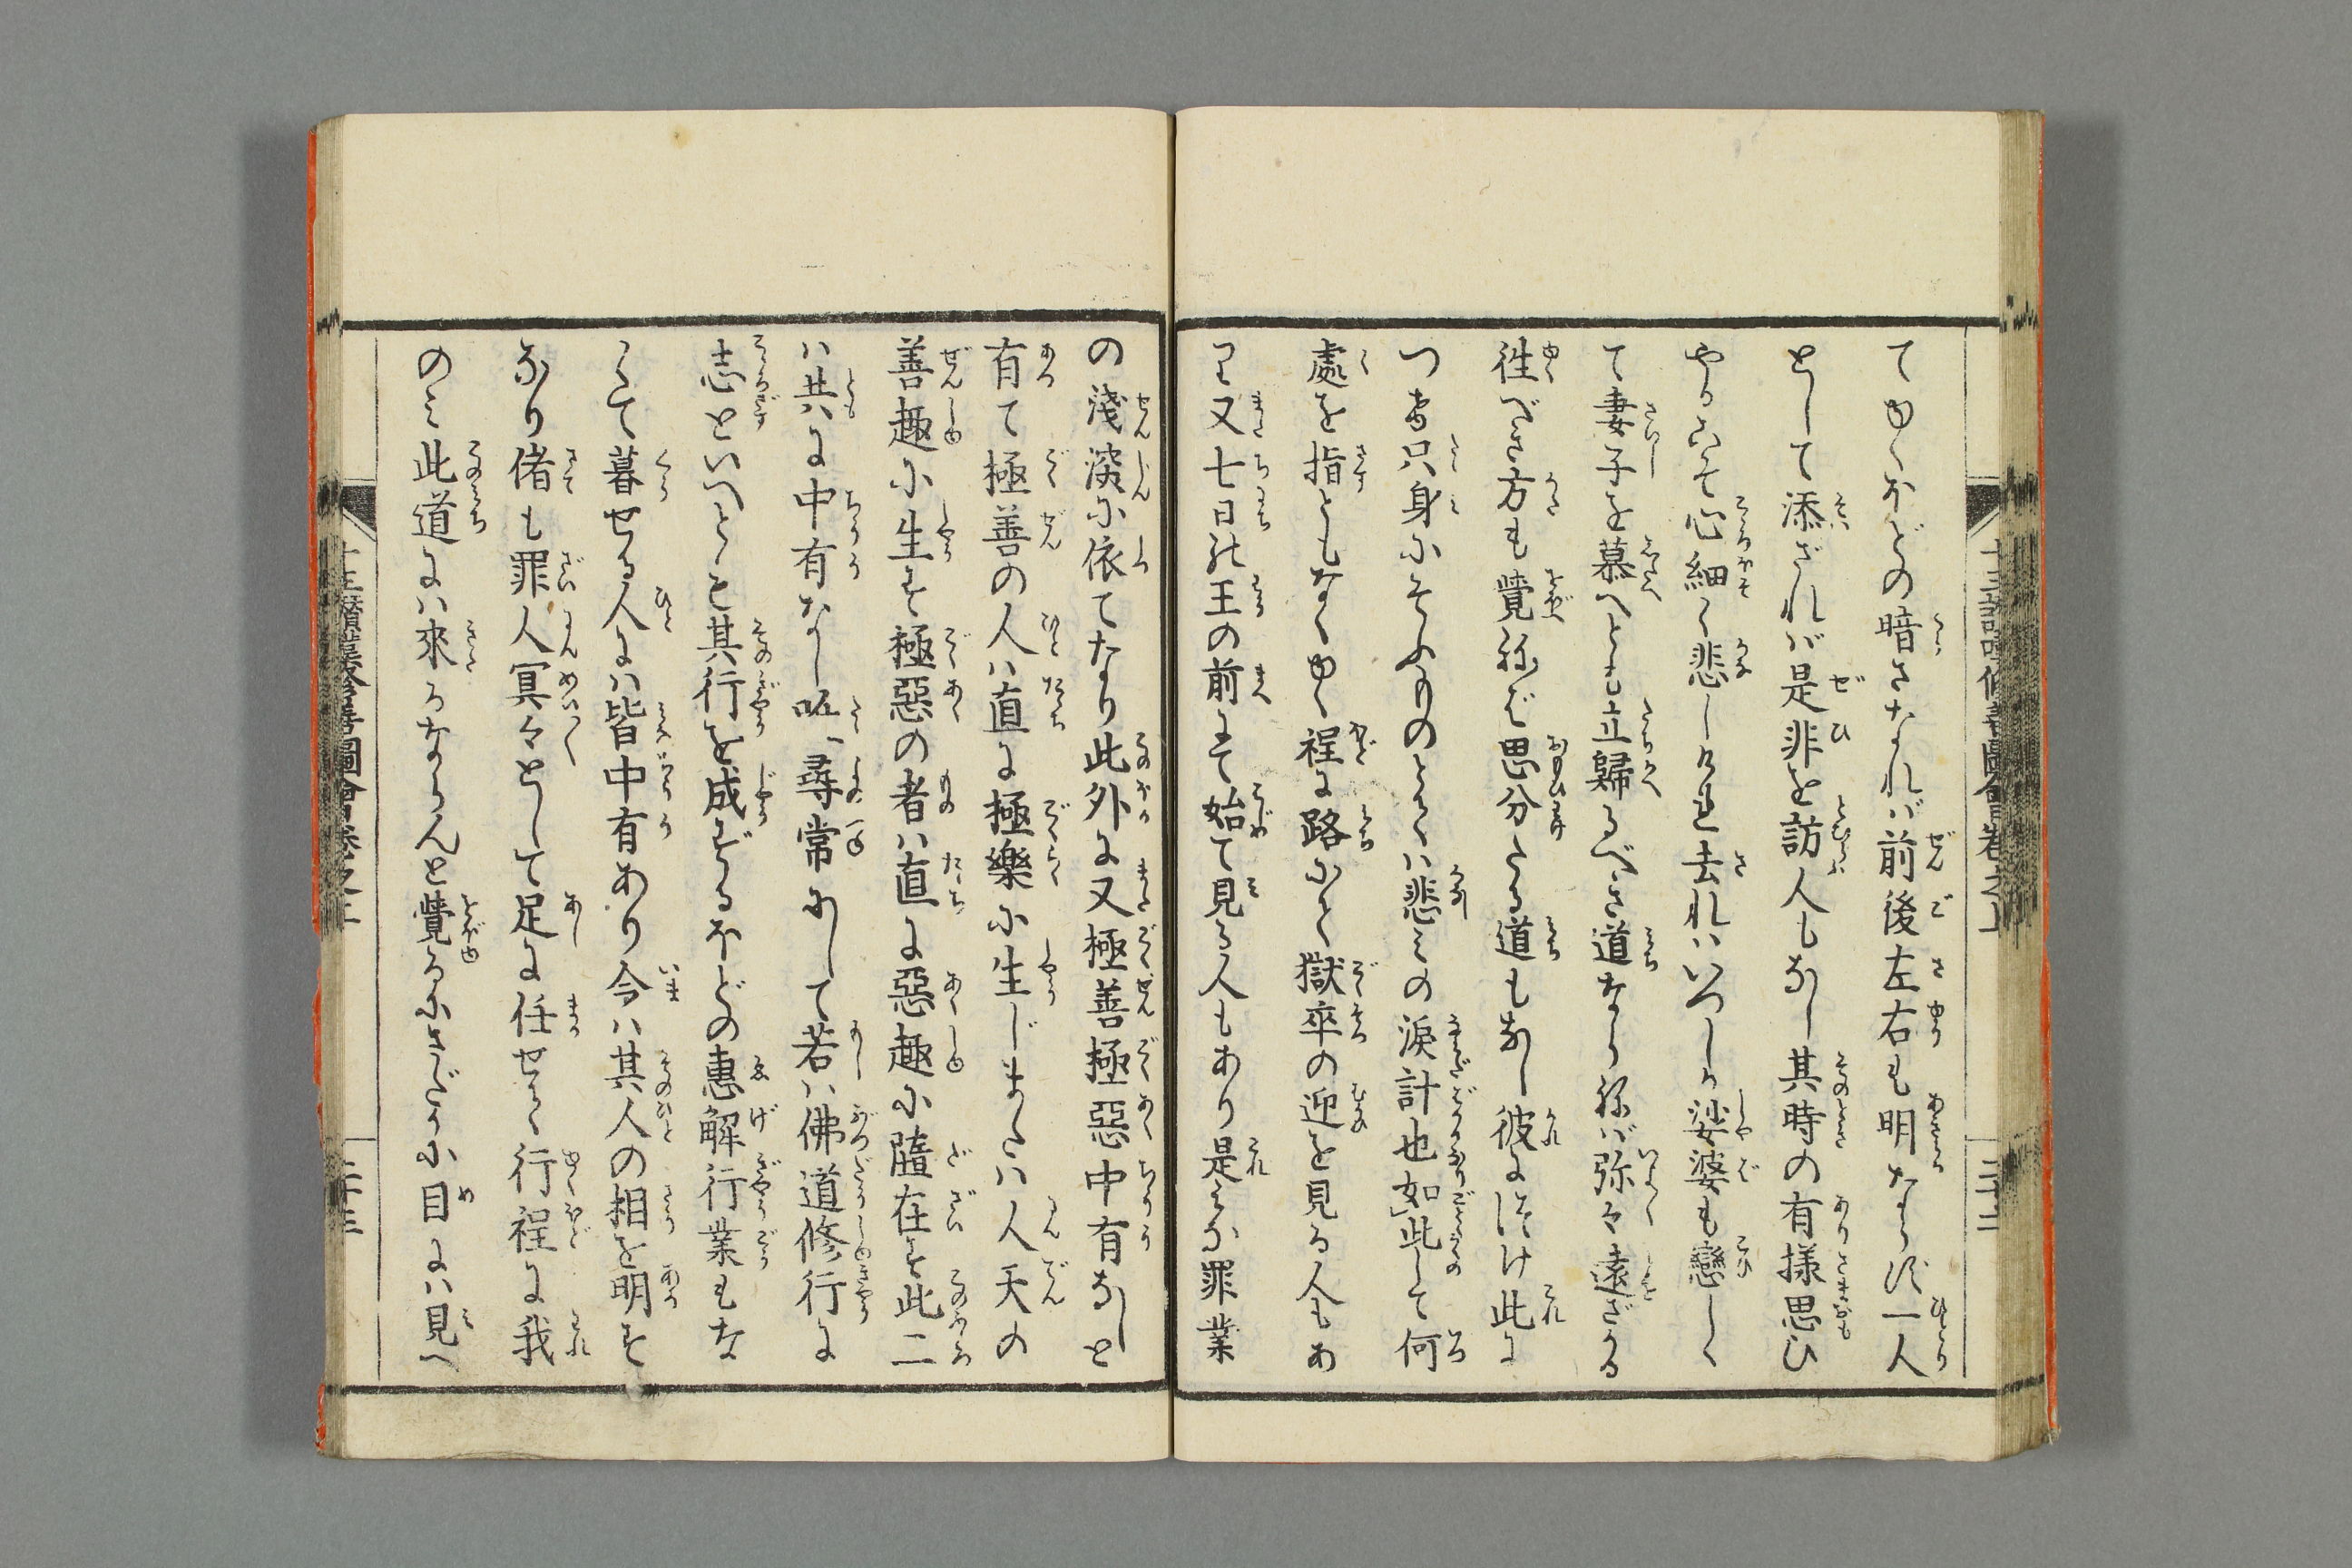 てゆくほどの暗さなれば前後左右も明ならず一人
として添ざれば是非を訪人もなし其時の有様思ひ
やるさへ心細く悲しけれ去ればいつしか娑婆も戀しく
て妻子を慕へとも立歸るべき道ならねば弥々遠ざかる
往べき方も覺ねば思分たる道もなし彼につけ此に
つけ只身にそふものとては悲みの涙計也如此して何
處を指ともなくゆく程に路にて獄卒の迎を見る人もあ
り又七日の王の前にて始て見る人もあり是みな罪業
の淺深に依てなり此外に又極善極惡中有なしと
有て極善の人は直に極樂に生じまたは人天の
善趣に生ず極惡の者は直に惡趣に墮在す此二
は共に中有なし唯尋常にして若は佛道修行に
志といへとも其行を成ざるほどの惠解行業もな
くて暮せる人には皆中有あり今は其人の相を明す
なり偖も罪人冥々として足に任せて行程に我
のみ此道には來るならんと覺るにさだかに目には見へ